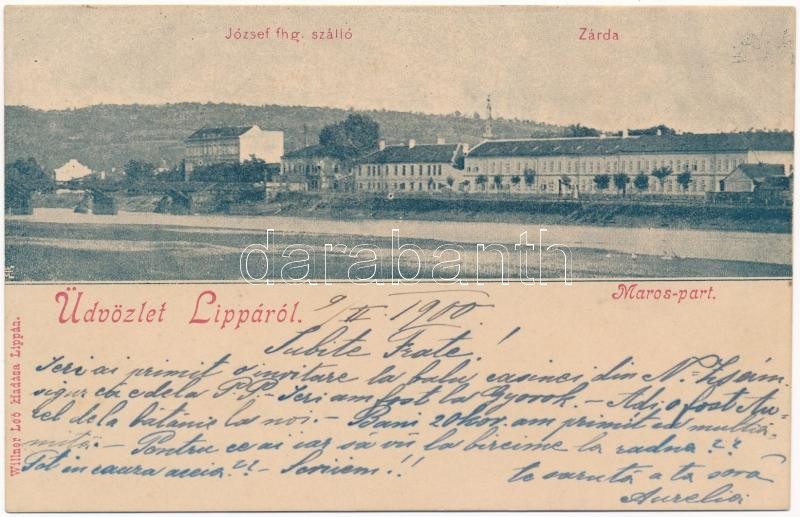 József fhg. szálló
Zárda
darabanth
Üdvözlet Lippáról.
Maros-part.
Willner Leó kiadása Lippán.
9/II 1900
Iubite Frate!
Ieri ai primit o invitare la balu casinei din N=
sigur că e dela P.P. Ieri am fost la Gyorok. - Adi o fost Au-
rel dela bătănie la noi. - Bani 20 kor. am primit cu mulțiă-
mită. - Pentru ce ai iar să vii la bireime la radna??
Tot in cauza accia?? - Serviem!!
te sarută a ta soră
Aurelia